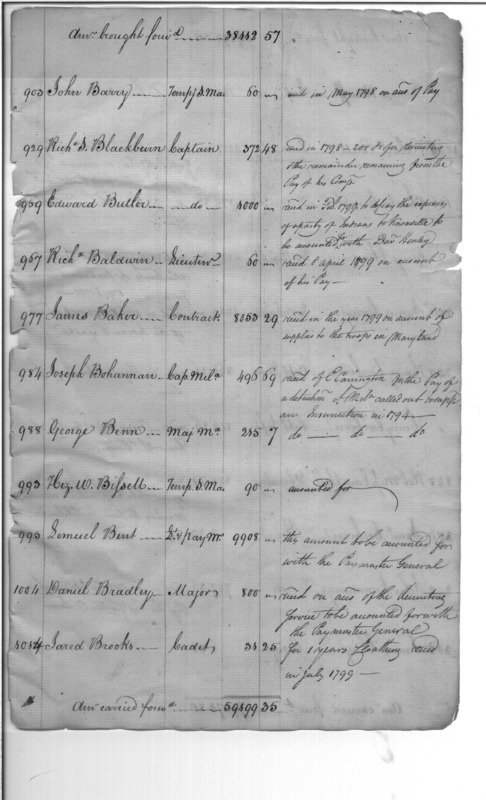 Amt. brought forwd 38442 57
903 John Barry Tempy S. Ma. 60 " recd in May 1798 on acct of Pay
929 Richd S. Blackburn Captain 372 48 recd in 1798 - 200 Ds for recruiting
the remainder remaining from the
Pay of his Compy
959 Edward Butler do 4000 " recd in Feb. 1799 to defray the expences
of a party of Indians to Knoxville to
be accounted with David Henley
967 Richd Baldwin Lieutent 60 " recd 8 april 1879 on account
of his Pay
977 James Baker Contract 8053 29 recd in the year 1799 on account of
supplies to the troops in Maryland
984 Joseph Bohannan Cap. Mila 496 69 recd of C Carington for the Pay of
a detachmt of Mila called out to suppress
an Insurrection in 1794
988 George Benn Maj. Ma 245 7 do do do
993 Hez. W. Bissell Temp. S. Ma. 90 " accounted for
995 Lemuel Bent Lt & Pay Mr 9908 " this amount to be accounted for
with the Paymaster General
1004 Daniel Bradley Major 800 " recd on acct of the recruiting
service to be accounted for with
the Paymaster General
Jared Brooks Cadet 34 25 for 1 years Cloathing recd
in July 1799
Amt carried forwd 59499 35